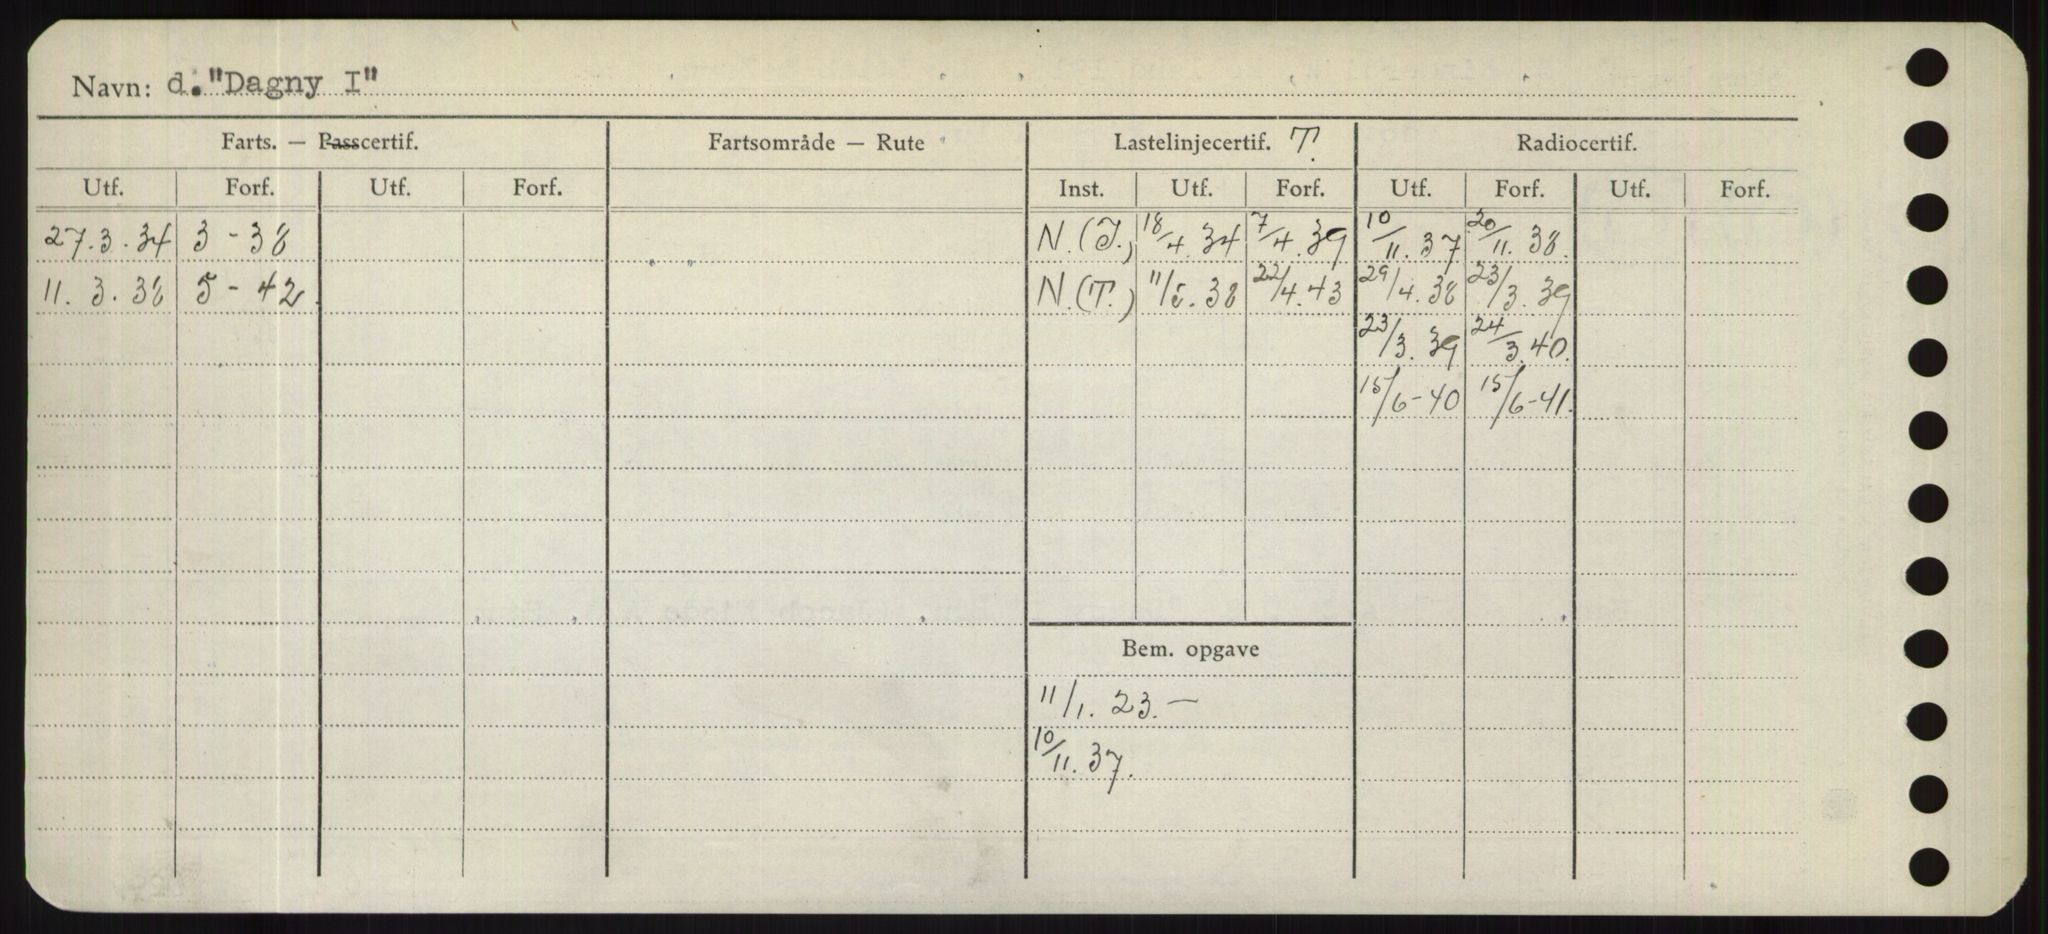 Navn: d. "Dagny I"
Farts. — Passcertif. Fartsområde — Rute Lastelinjecertif. T. Radiocertif.
Utf. Forf. Utf. Forf. Inst. Utf. Forf. Utf. Forf. Utf. Forf.
27.3.34 3-38 N.(T.) 18/4.34 7/4.39 10/11.37 20/11.38.
11.3.38 5-42 N.(T.) 11/5.38 22/4.43 29/4.38 23/3.39
23/3.39 24/3.40.
15/6-40 15/6-41.
Bem. opgave
11/1.23.—
10/11.37.